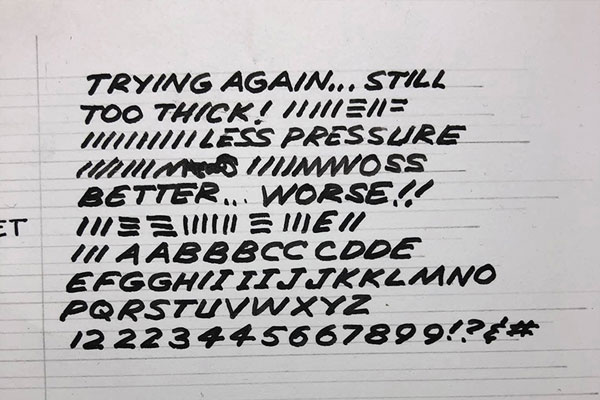 TRYING AGAIN... STILL
TOO THICK! /////≡//=
//////////LESS PRESSURE
////MWOSS
BETTER... WORSE!!
///≡≡//////≡///E//
ET
/// AABBBCC CDDE
EFGGHIIIIJJKKLMNO
PQRSTUVWXYZ
1222344566789 9!?&#